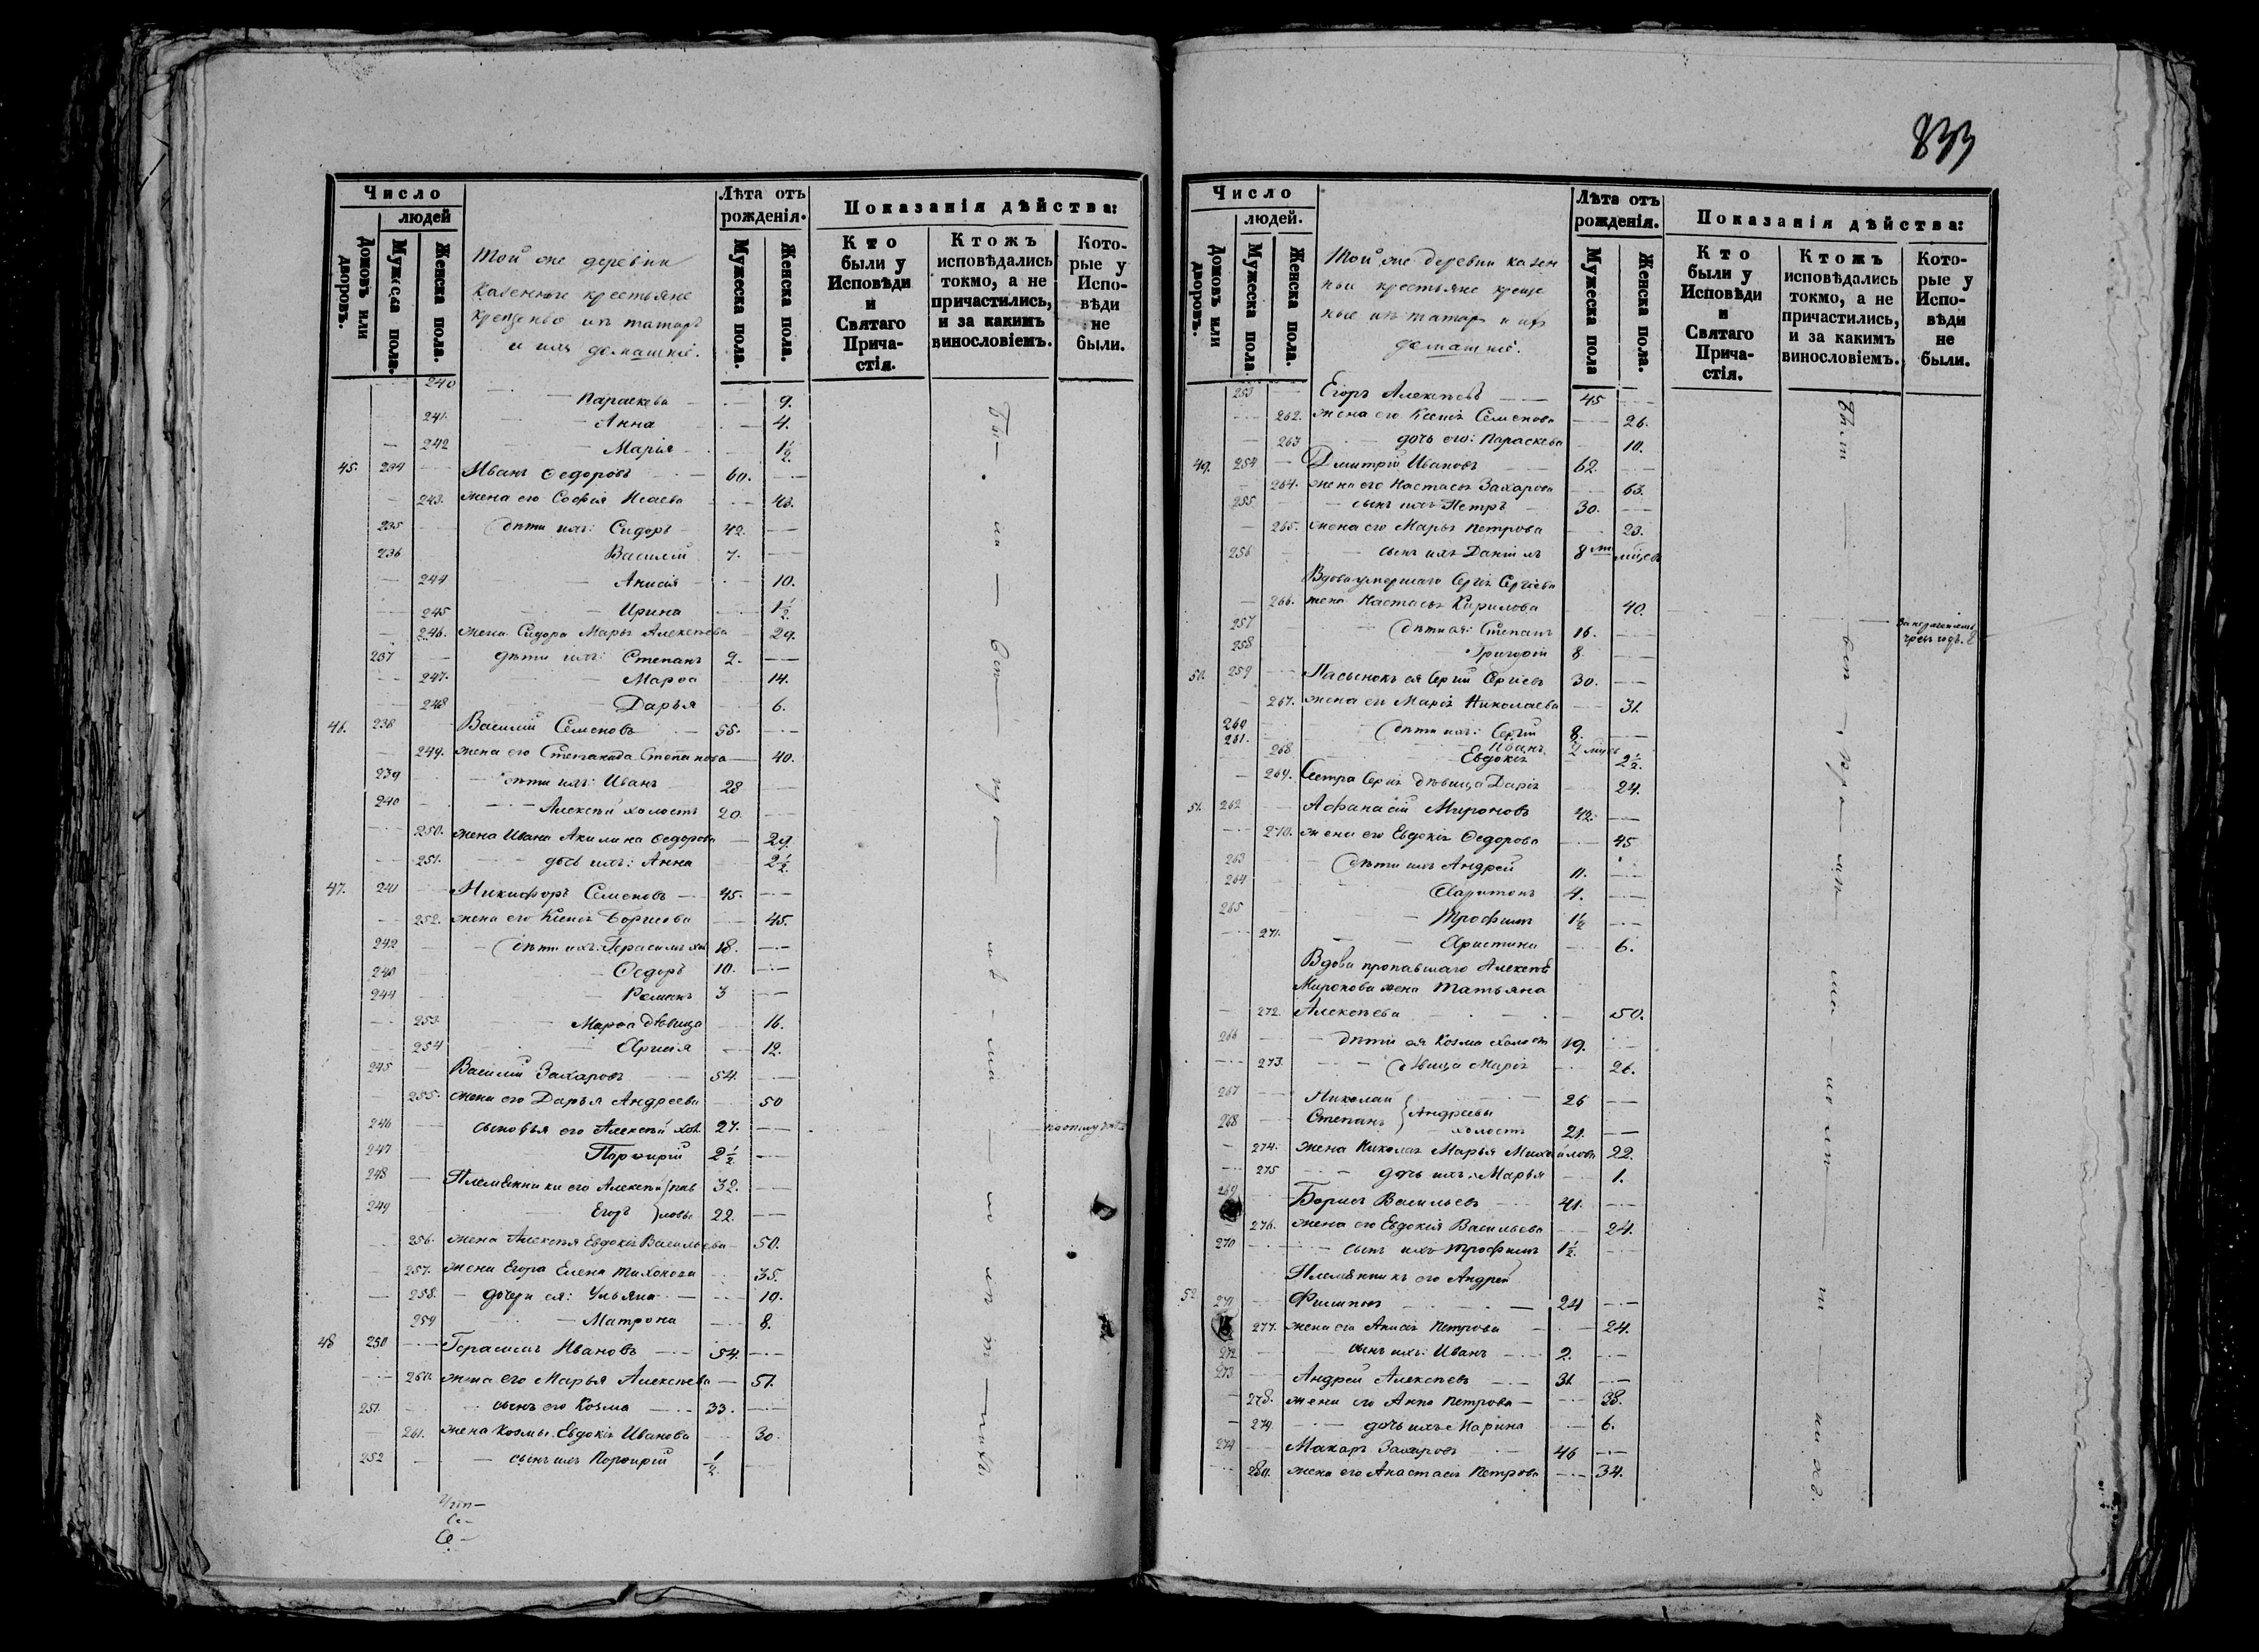 833
Число
людей
Домовъ или дворовъ.
Мужеска пола.
Женска пола.
Той же деревни
казенные крестьяне
крещеные изъ татаръ
и ихъ домашніе.
Лѣта отъ
рожденія.
Мужеска пола.
Женска пола.
Показанія дѣйства:
Кто
были у
Исповѣди
и
Святаго
Прича-
стія.
Ктожъ
исповѣдались
токмо, а не
причастились,
и за какимъ
винословіемъ.
Кото-
рые у
Испо-
вѣди
не
были.
240 Параскева 9.
241. Анна 4.
242 Марія 1½
45. 234 Иванъ Ѳедоровъ 60.
243. жена его Софія Исаева 43.
235 дѣти ихъ: Сидоръ 42.
236 Василій 7.
244 Анисія 10.
245 Ирина 1½
246. жена Сидора Марья Алексѣева 29.
237 дѣти ихъ: Степанъ 2.
247. Марѳа 14.
248 Дарья 6.
46. 238 Василій Семеновъ 55.
249. жена его Степанида Степанова 40.
239 дѣти ихъ: Иванъ 28
240 Алексѣй холостъ 20.
250. жена Ивана Акилина Ѳедорова 29.
251. дочь ихъ: Анна 2½
47. 241 Никифоръ Семеновъ 45.
252. жена его Ксенія Борисова 45.
242 дѣти ихъ: Герасимъ хол 18.
243 Ѳедоръ 10.
244 Романъ 3
253 Марѳа дѣвица 16.
254 Ирина 12.
245 Василій Захаровъ 54.
255. жена его Дарья Андреева 50
246 сыновья его Алексѣй хол. 27.
247 Порфирій 2½
248 Племянники его Алексѣй пав 32.
249 Егоръ ловы 22.
256. жена Алексѣя Евдокія Васильева 50.
257. жена Егора Елена Тихонова 35.
258. дочери ея: Ульяна 19.
259 Матрона 8.
48 250 Герасимъ Ивановъ 54.
260. жена его Марья Алексѣева 51.
251. сынъ его Козма 33.
261. жена Козмы Евдокія Иванова 30
252 сынъ ихъ Порфирій ½
Число
людей.
Домовъ или дворовъ.
Мужеска пола.
Женска пола.
Той же деревни казен
ные крестьяне креще
ные изъ татар и ихъ
домашніе.
Лѣта отъ
рожденія.
Мужеска пола
Женска пола.
Показанія дѣйства:
Кто
были у
Исповѣди
и
Святаго
Прича-
стія.
Ктожъ
исповѣдались
токмо, а не
причастились,
и за какимъ
винословіемъ.
Кото-
рые у
Испо-
вѣди
не
были.
253 Егоръ Алексѣевъ 45
262. жена его Ксенія Семенова 26.
263 дочь его: Параскева 10.
49. 254 Дмитрій Ивановъ 62.
264. жена его Настасья Захарова 63.
255. сынъ ихъ Петръ 30.
265. жена его Марья Петрова 23.
256 сынъ ихъ Даніилъ 8 ми мѣсяц
Вдова умершаго Сергія Сергіева
266. жена Настасья Кирилова 40.
257 дѣти ея: Степанъ 16.
258 Григорій 8.
50. 259 Пасынокъ ея Сергій Сергіевъ 30.
267. жена его Марія Николаева 31.
260 дѣти ихъ: Сергій 8.
261. Иванъ
268 Евдокія 2½
269. Сестра Сергія дѣвица Дарія 24.
51. 262 Афанасій Мироновъ 42.
270. жена его Евдокія Ѳедорова 45
263 дѣти ихъ Андрей 11.
264 Харитонъ 4.
265 Трофимъ 1½
271. Христина 6.
Вдова пропавшаго Алексѣя
Миронова жена Татьяна
272. Алексѣева 50.
266 дѣти ея Козма холост 19.
273. дѣвица Марія 26.
267 Николай 26
Андреевы
268 Степанъ холостъ 21.
274. жена Николая Марья Михайлова 22.
275 дочь ихъ: Марья 1.
269 Борисъ Васильевъ 41.
276. жена его Евдокія Васильева 24.
270 сынъ ихъ Трофимъ 1½
Племянникъ его Андрей
52 271 Филипов 24
277. жена его Анисія Петрова 24.
272 сынъ ихъ: Иванъ 2.
273. Андрей Алексѣевъ 31.
278. жена его Анна Петрова 38.
279 дочь ихъ Марина 6.
274 Макаръ Захаровъ 46
280. жена его Анастасія Петрова 34.